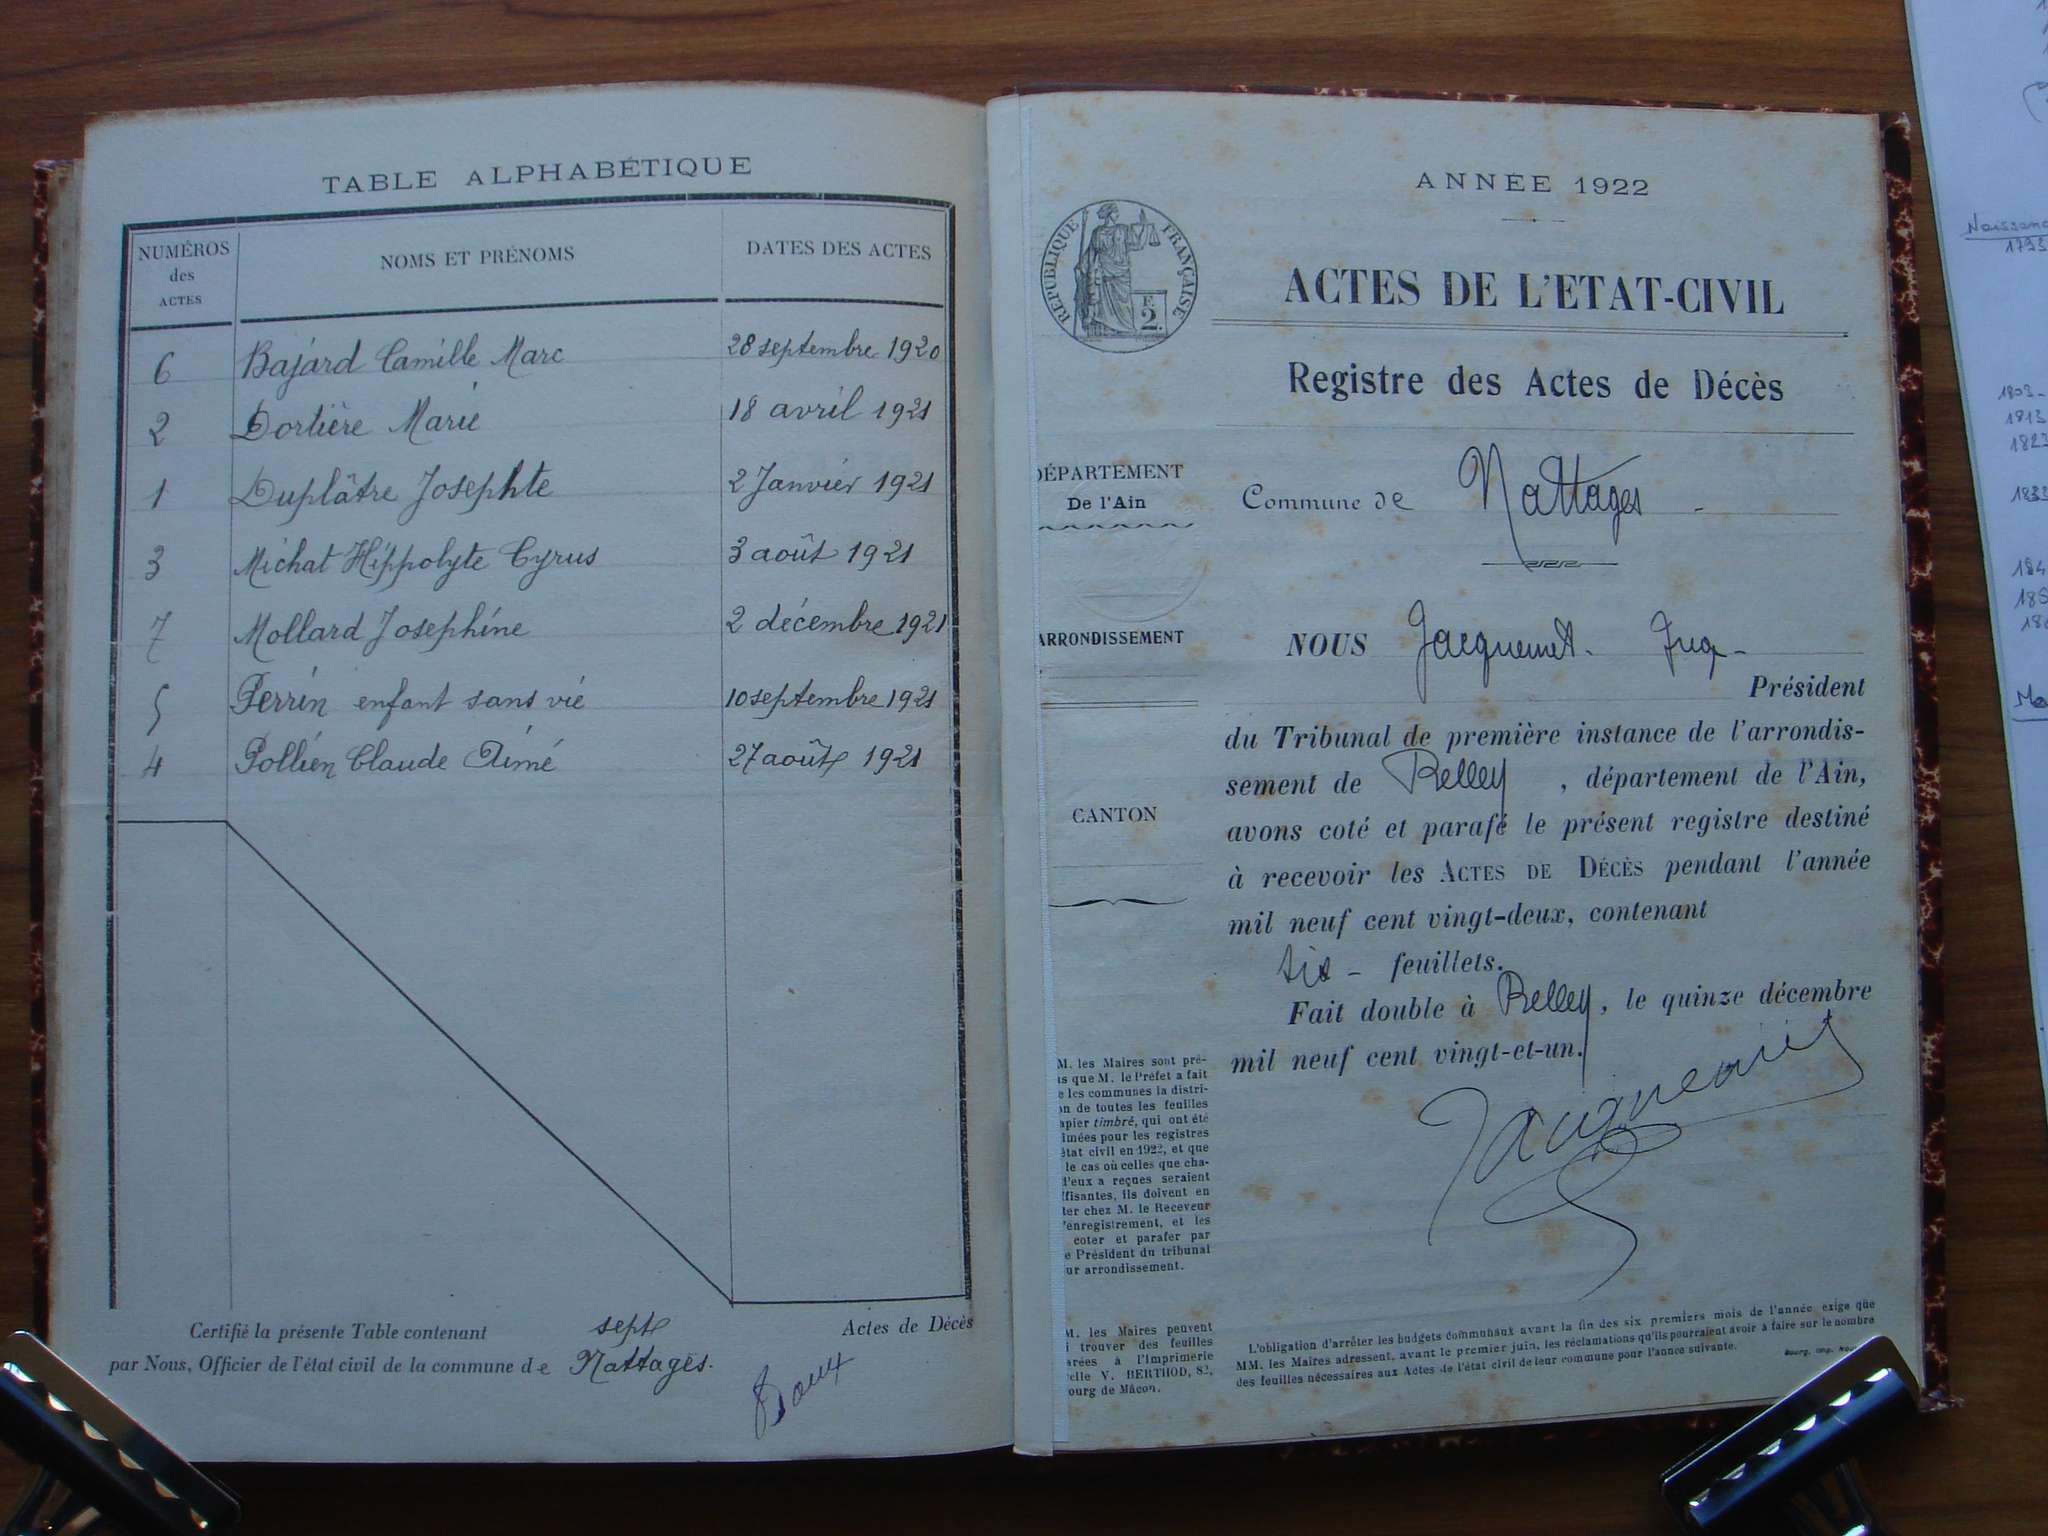 TABLE ALPHABÉTIQUE
NUMÉROS des ACTES NOMS ET PRÉNOMS DATES DES ACTES
6 Bajard Camille Marc 28 septembre 1920
2 Dortière Marie 18 avril 1921
1 Duplâtre Josephte 2 Janvier 1921
3 Michat Hippolyte Cyrus 3 août 1921
7 Mollard Josephine 2 décembre 1921
5 Perrin enfant sans vie 10 septembre 1921
4 Pollien Claude Aimé 27 août 1921
Certifié la présente Table contenant sept Actes de Décès
par Nous, Officier de l'état civil de la commune de Nattages.
ANNÉE 1922
RÉPUBLIQUE FRANÇAISE
F. 2.
ACTES DE L'ETAT-CIVIL
Registre des Actes de Décès
DÉPARTEMENT
De l'Ain
Commune de Nattages
ARRONDISSEMENT
CANTON
NOUS Jacquemet
Président
du Tribunal de première instance de l'arrondis-
sement de Belley, département de l'Ain,
avons coté et parafé le présent registre destiné
à recevoir les ACTES DE DÉCÈS pendant l'année
mil neuf cent vingt-deux, contenant
six - feuillets.
Fait double à Belley, le quinze décembre
mil neuf cent vingt-et-un.
Jacquemet
M. les Maires sont pré-
s que M. le Préfet a fait
e les communes la distri-
n de toutes les feuilles
apier timbré, qui ont été
imées pour les registres
état civil en 1922, et que
le cas où celles que cha-
d'eux a reçues seraient
ffisantes, ils doivent en
ter chez M. le Receveur
'enregistrement, et les
coter et parafer par
e Président du tribunal
ur arrondissement.
M. les Maires peuvent
i trouver des feuilles
arées à l'Imprimerie
elle V. BERTHOD, 82,
ourg de Mâcon.
L'obligation d'arrêter les budgets communaux avant la fin des six premiers mois de l'année exige que
MM. les Maires adressent, avant le premier juin, les réclamations qu'ils pourraient avoir à faire sur le nombre
des feuilles nécessaires aux Actes de l'état civil de leur commune pour l'année suivante.
Bourg, imp.
Naissanc
1793
1803-
1813
1823
1833
184